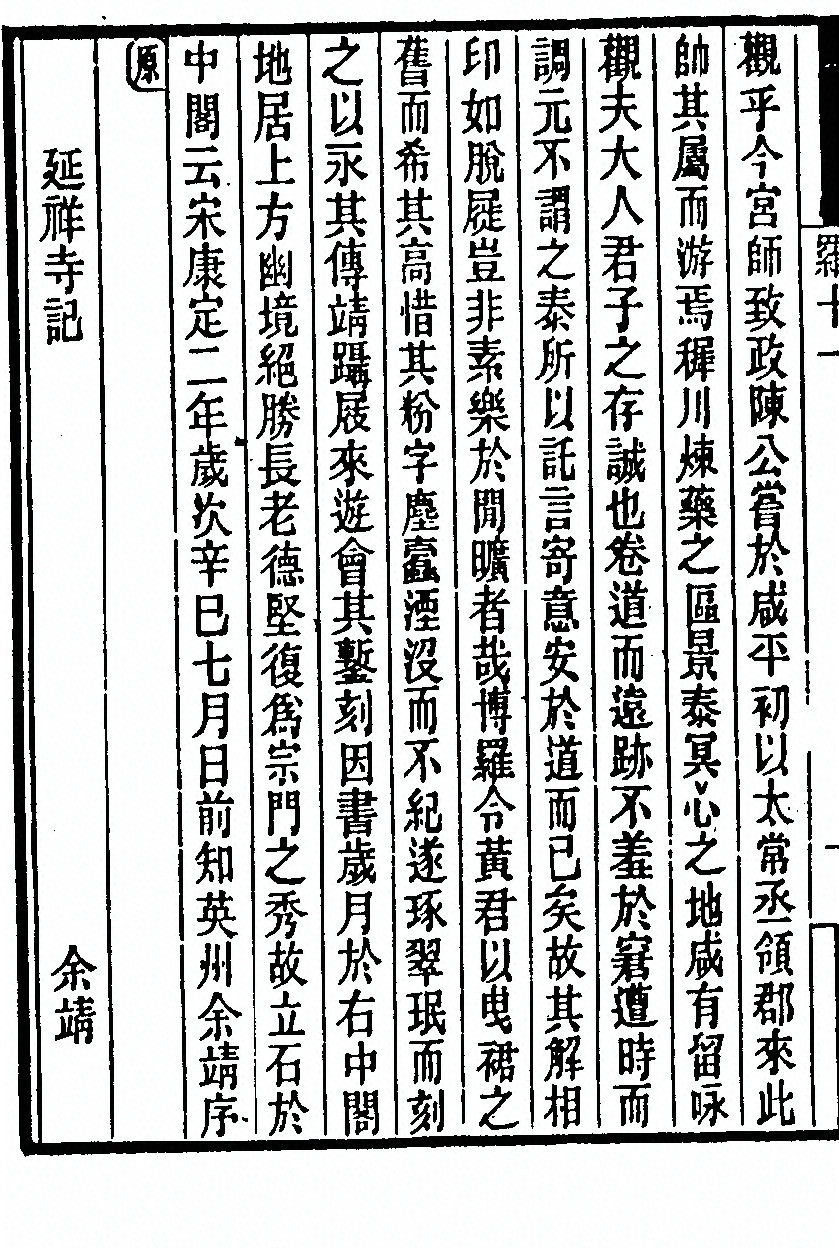 羅十一
觀乎今宮師致政陳公嘗於咸平初以太常丞領郡來此
帥其屬而游焉穉川煉藥之區景泰冥心之地咸有留咏
觀夫大人君子之存誠也卷道而遠跡不羞於窘遭時而
調元不謂之泰所以託言寄意安於道而已矣故其解相
印如脫屣豈非素樂於閒曠者哉博羅令黃君以曳裾之
舊而希其高惜其粉字塵蠹湮沒而不紀遂琢翠珉而刻
之以永其傳靖躡屐來遊會其鏨刻因書歲月於右中閣
地居上方幽境絕勝長老德堅復為宗門之秀故立石於
中閣云宋康定二年歲次辛巳七月日前知英州余靖序
原
延祥寺記 余靖